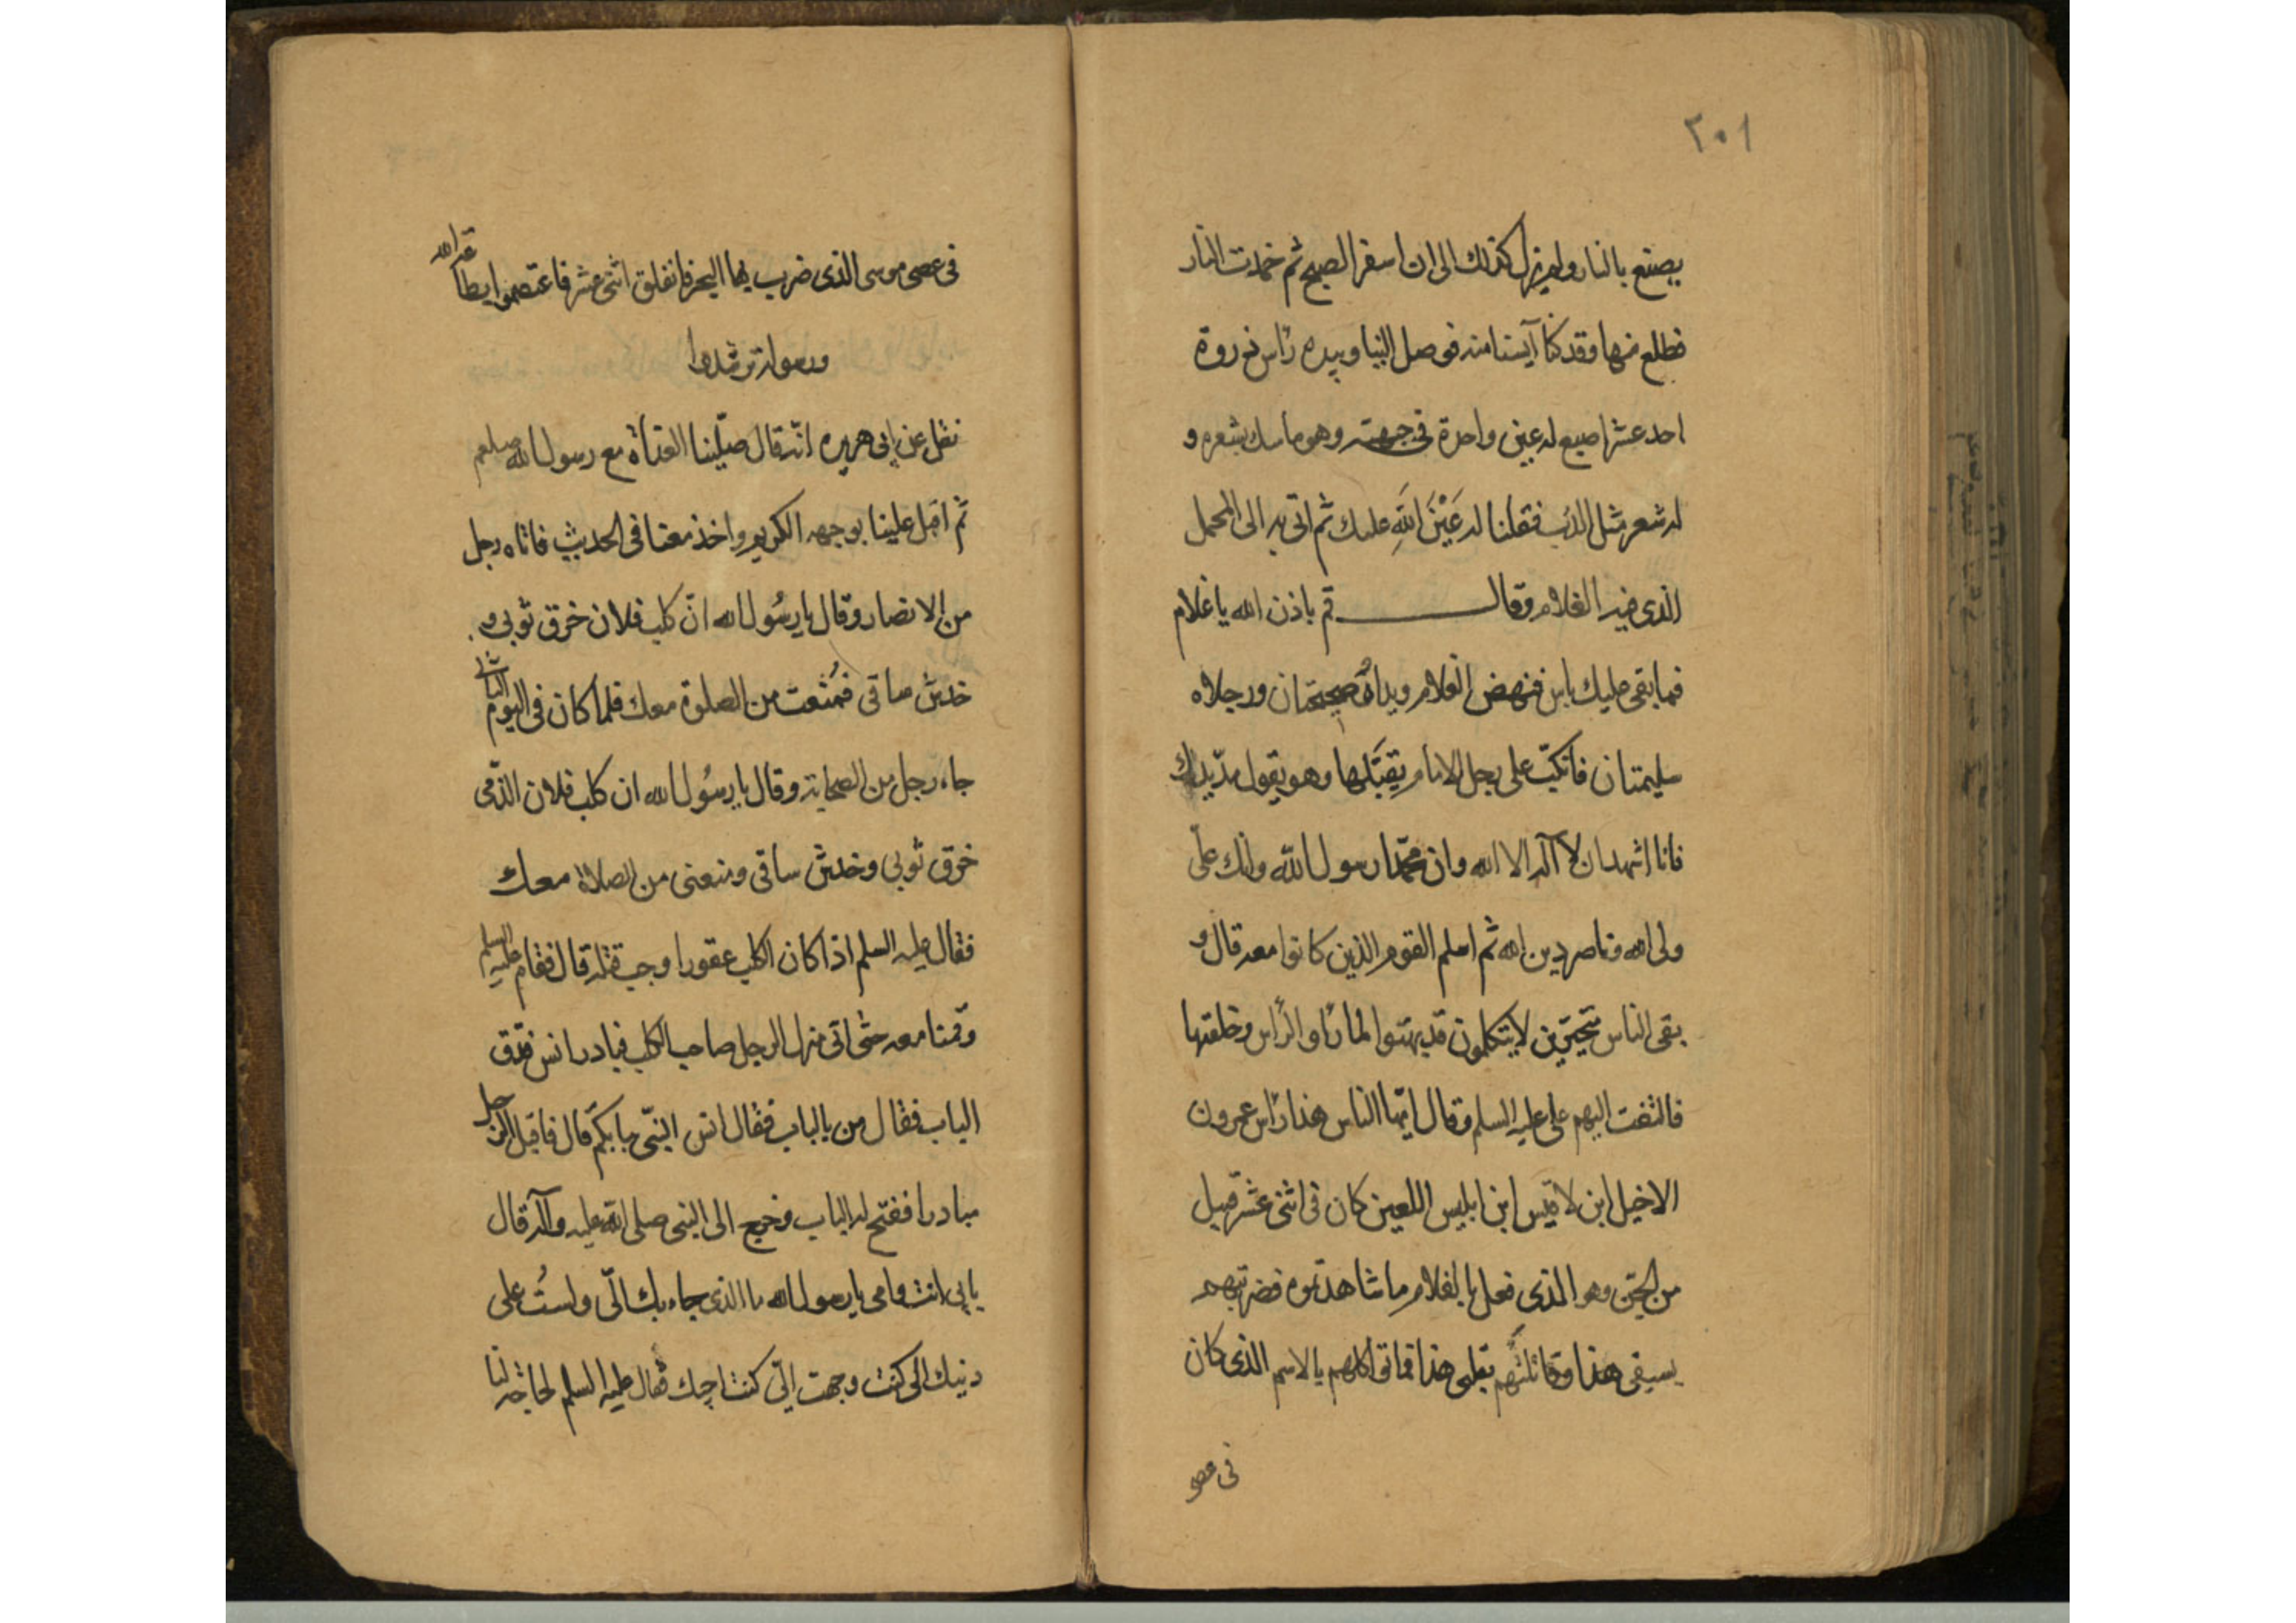 ٢٠١
يصنع بالنار ولم يزل كذلك الى ان اسفر الصبح ثم خمدت النار
فطلع منها وقد كنّا آيسنا منه فوصل الينا وبيده رأس ذروة
احد عشر اصبع له عين واحدة فى جبهته وهو ماسك بشعره و
له شعر مثل الدب فقلنا له عَيْنَ اللّهِ عليك ثم اتى به الى المحمل
الذى فيه الغلام وقال قم باذن الله يا غلام
فما بقى عليك باس فنهض الغلام ويداهُ صحيحتان ورجلاه
سليمتان فانكبّ على رجل الامام يقبّلها وهو يقول مدّ يدك
فانا اشهد ان لا آله الا الله وان محمّدا رسول اللّه وانك علىّ
ولى الله وناصر دين الله ثم اسلم القوم الذين كانوا معه قال و
بقى الناس متحيّرين لا يتكلمون قد بهتوا لمّا رأوا الرأس وخلقتها
فالتفت اليهم على عليه السلم وقال ايّها الناس هذا رأس عمرون
الاخيل ابن لاقيس ابن ابليس اللعين كان فى اثنى عشر قبيل
من الجنّ وهو الذى فعل بالغلام ما شاهدتموه فضربتهم
بسيفى هذا وقاتلتُهم بقلبى هذا فماتوا كلهم بالاسم الذى كان
فى عصى
فى عصى موسى الذى ضرب بها البحر فانفلق اثنى عشر فاعتصموا بطاعة الله
ورسوله ترشدوا
نقل عن ابى هريره انّه قال صلّينا الغداة مع رسول الله صلعم
ثم اقبل علينا بوجهه الكريم واخذ معنا فى الحديث فاتاه رجل
من الانصار وقال يا رسُول الله انّ كلب فلان خرق ثوبى و
خدش ساقى فمُنعت من الصلوة معك فلما كان فى اليوم الثانى
جاء رجل من الصحابة وقال يا رسُول الله ان كلب فلان الذّمى
خرق ثوبى وخدش ساقى ومنعنى من الصلاة معك
فقال عليه السلم اذا كان الكلب عقورا وجب قتله قال فقام عليه السلم
وقمنا معه حتى اتى منزل الرجل صاحب الكلب فبادر انس فدق
الباب فقال من بالباب فقال انس النبّى ببابكم قال فاقبل الرجل
مبادرا ففتح له الباب وخرج الى النبى صلى اللّه عليه وآله قال
بابى انت وامى يا رسول الله ما الذى جاء بك الىّ ولستُ على
دينك الى كنت وجهت الىّ كنت اجبك فقال عليه السلم لحاجة لنا